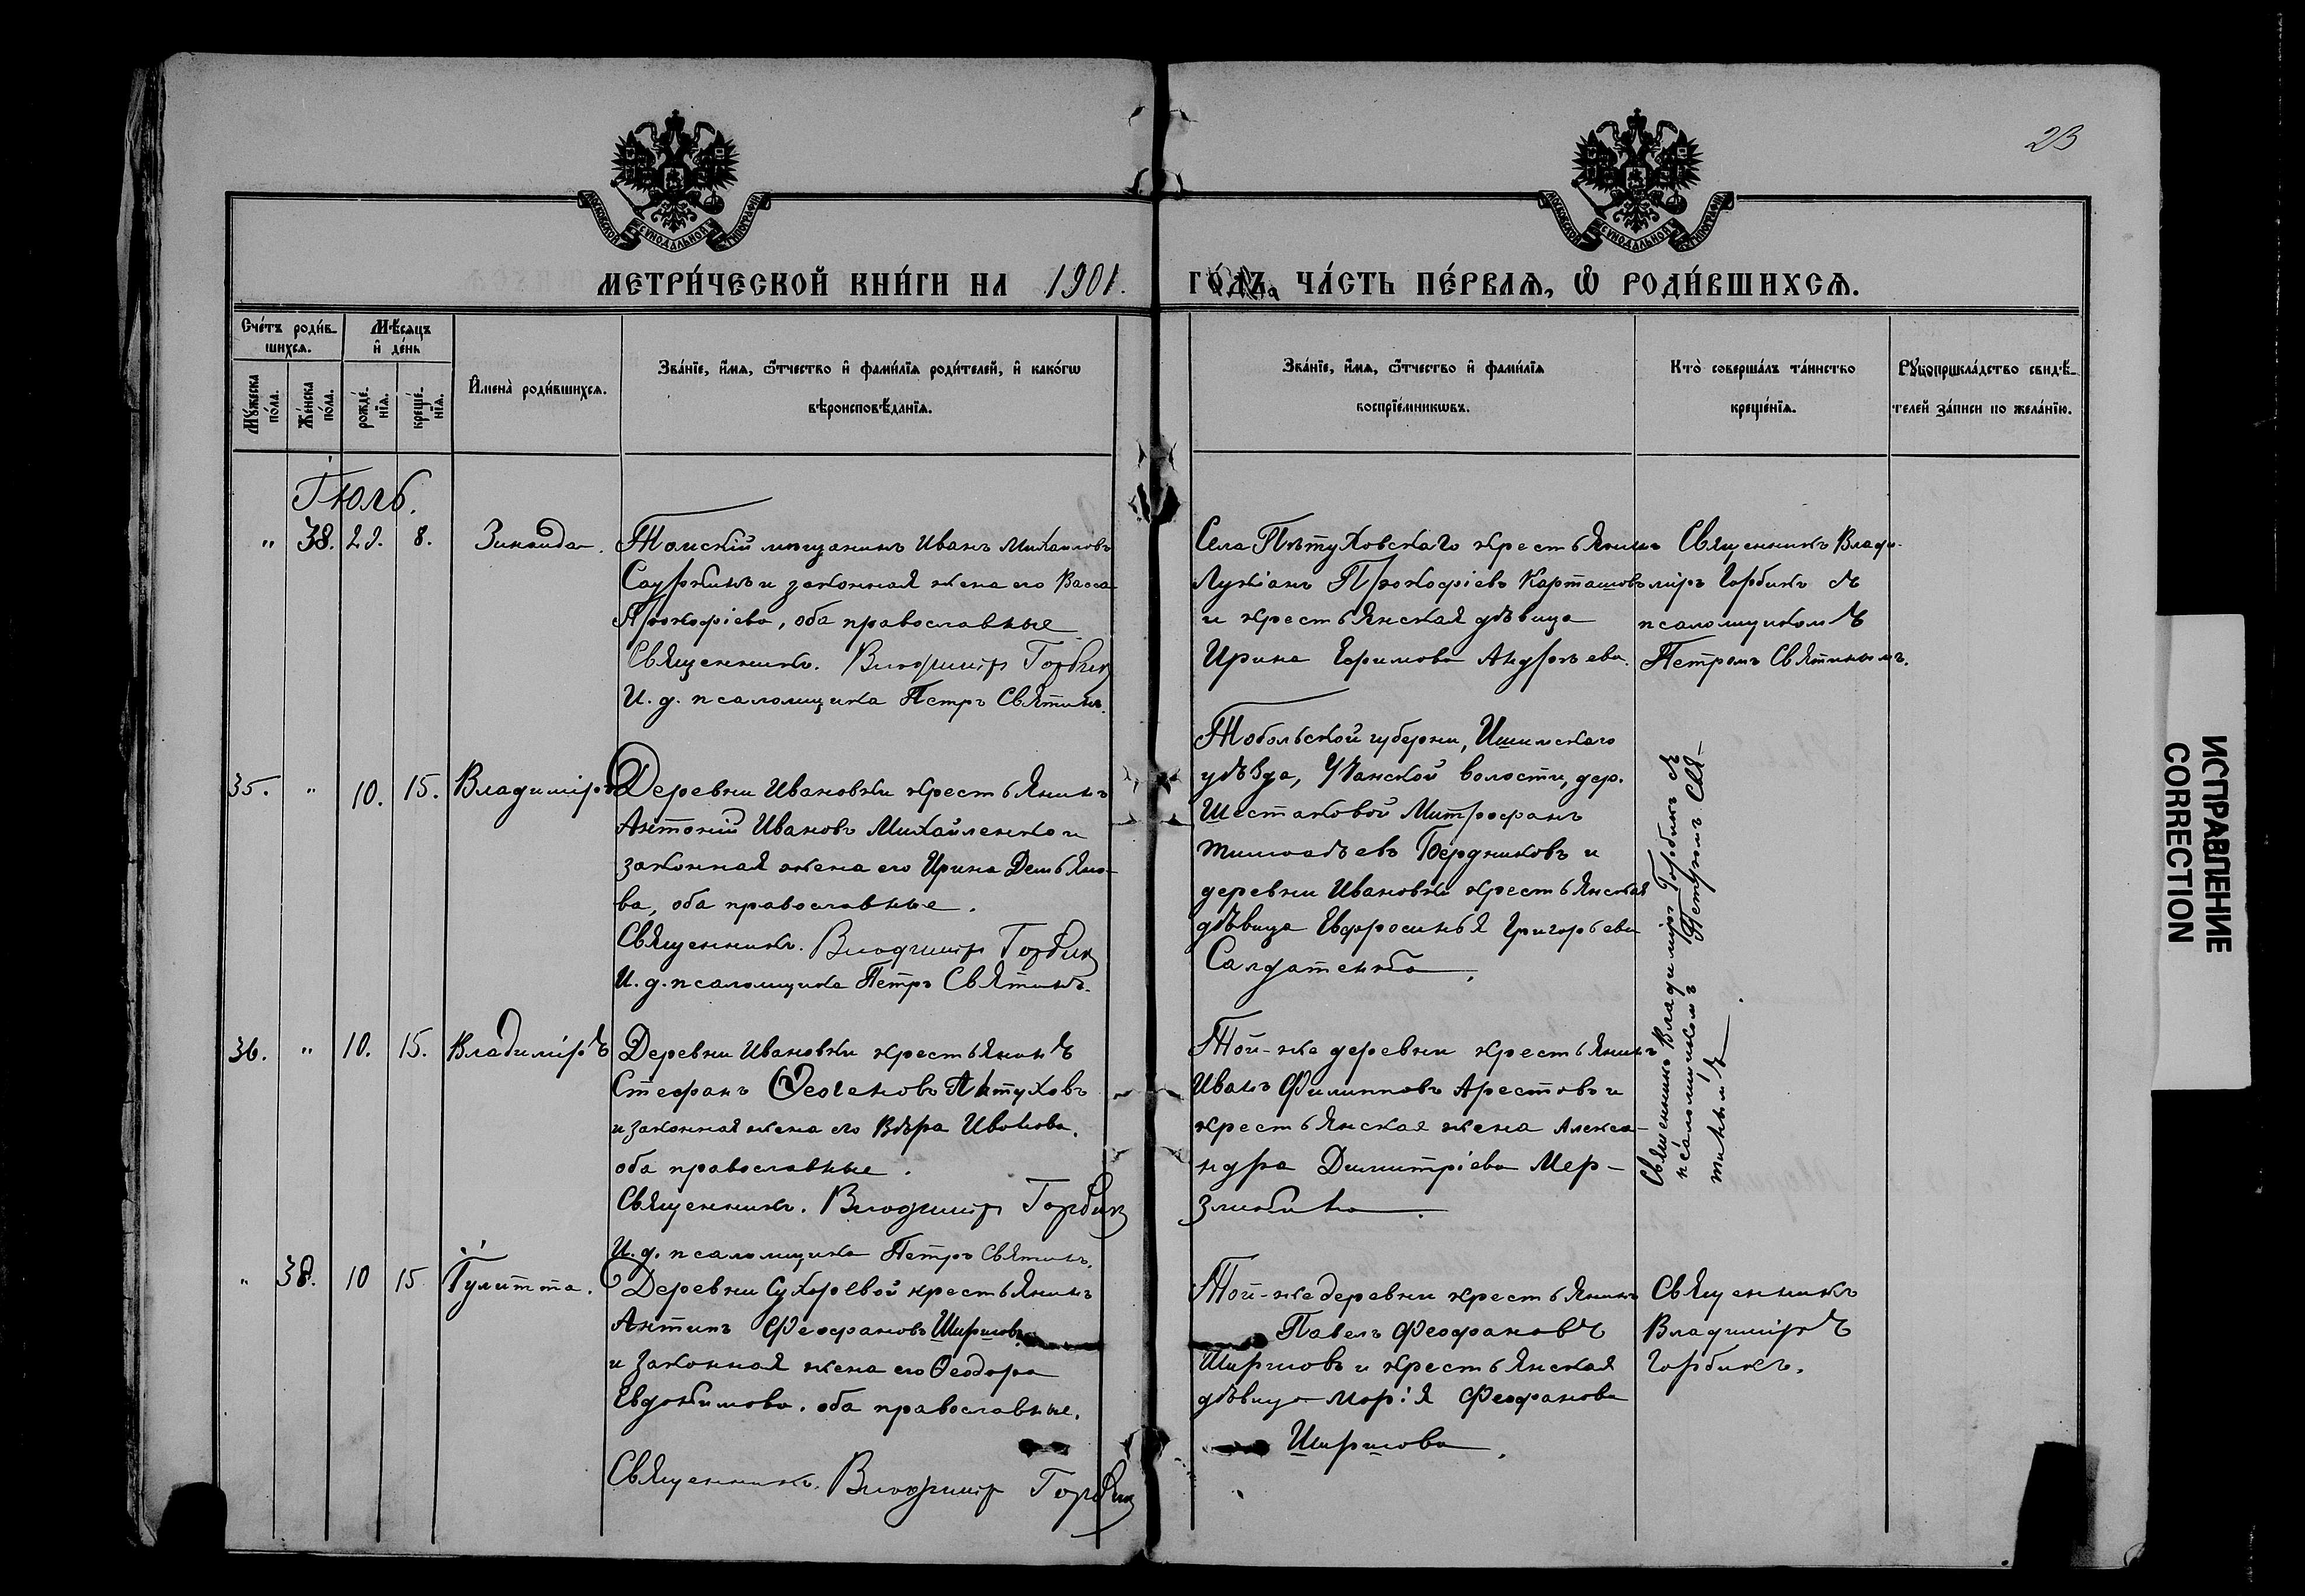 23
МОСКОВСКОЙ СѴНОДАЛЬНОЙ ТИПОГРАФІИ
МОСКОВСКОЙ СѴНОДАЛЬНОЙ ТИПОГРАФІИ
МЕТРИ́ЧЕСКОЙ КНИ́ГИ НА 1901. ГО́ДЪ, ЧА́СТЬ ПЕ́РВАѦ, Ѡ҆ РОДИ́ВШИХСѦ.
Сче́тъ роди́в-
шихсѧ.
Мѣ́сѧцъ
и҆ де́нь
Мꙋ́жеска по́ла.
Же́нска по́ла.
рожде́-нїѧ.
креще́-нїѧ.
И҆мена̀ роди́вшихсѧ.
Зва́нїе, и҆́мѧ, ѻ҆́тчество и҆ фами́лїѧ роди́телей, и҆ како́гѡ
вѣроисповѣ́данїѧ.
Зва́нїе, и҆́мѧ, ѻ҆́тчество и҆ фами́лїѧ
воспрїе́мникѡвъ.
Кто̀ соверша́лъ та́инство
креще́нїѧ.
Рꙋкоприкла́дство свидѣ́-
телей за́писи по жела́нїю.
Іюль.
" 38. 29. 8. Зинаида.
Томскій мѣщанинъ Иванъ Михаиловъ
и законная жена его Васса
Прокофіева, оба православные
Священникъ. Владимір Горбик
И. д. псаломщика Петръ Святинъ.
Села Пѣтуховскаго крестьянинъ
Лукіанъ Прокофіевъ Карташовъ
и крестьянская дѣвица
Ирина Ефимова Андреева.
Священникъ Влади-
міръ Горбикъ съ
псаломщикомъ
Петромъ Святинымъ.
35. " 10. 15. Владиміръ
Деревни Ивановки крестьянинъ
Антоній Ивановъ Михайленко и
законная жена его Ирина Демьяно-
ва, оба православные.
Священникъ. Владимір Горбик
И. д. псаломщика Петръ Святинъ.
Тобольской губерни, Ишимскаго
уѣзда, волости, дер.
Шестаковой Митрофанъ
Тимоѳеевъ Бердниковъ и
деревни Ивановки крестьянская
дѣвица Евфросинья Григорьева
Салдатенко.
Священникъ Владиміръ Горбикъ съ
псаломщикомъ Петромъ Свя-
тинымъ.
36. " 10. 15. Владиміръ
Деревни Ивановки крестьянинъ
Стефанъ Пѣтуховъ
и законная жена его Вѣра Иванова.
оба православные.
Священникъ. Владимір Горбик
И. д. псаломщика Петръ Святинъ.
Той-же деревни крестьянинъ
Иванъ Филипповъ Арестовъ и
крестьянская жена Алекса-
ндра Димитріева Мер-
злюкина.
" 38. 10 15 Іулитта.
Деревни Сухоревой крестьянинъ
Антипъ Феофановъ Ширшовъ
и законная жена его Ѳеодора
Евдокимова. оба православные.
Священникъ. Владимір Горбик
Той-же деревни крестьянинъ
Павелъ Феофановъ
Ширшовъ и крестьянская
дѣвица Марія Феофанова
Ширшова.
Священникъ
Владиміръ
Горбикъ.
ИСПРАВЛЕНИЕ
CORRECTION